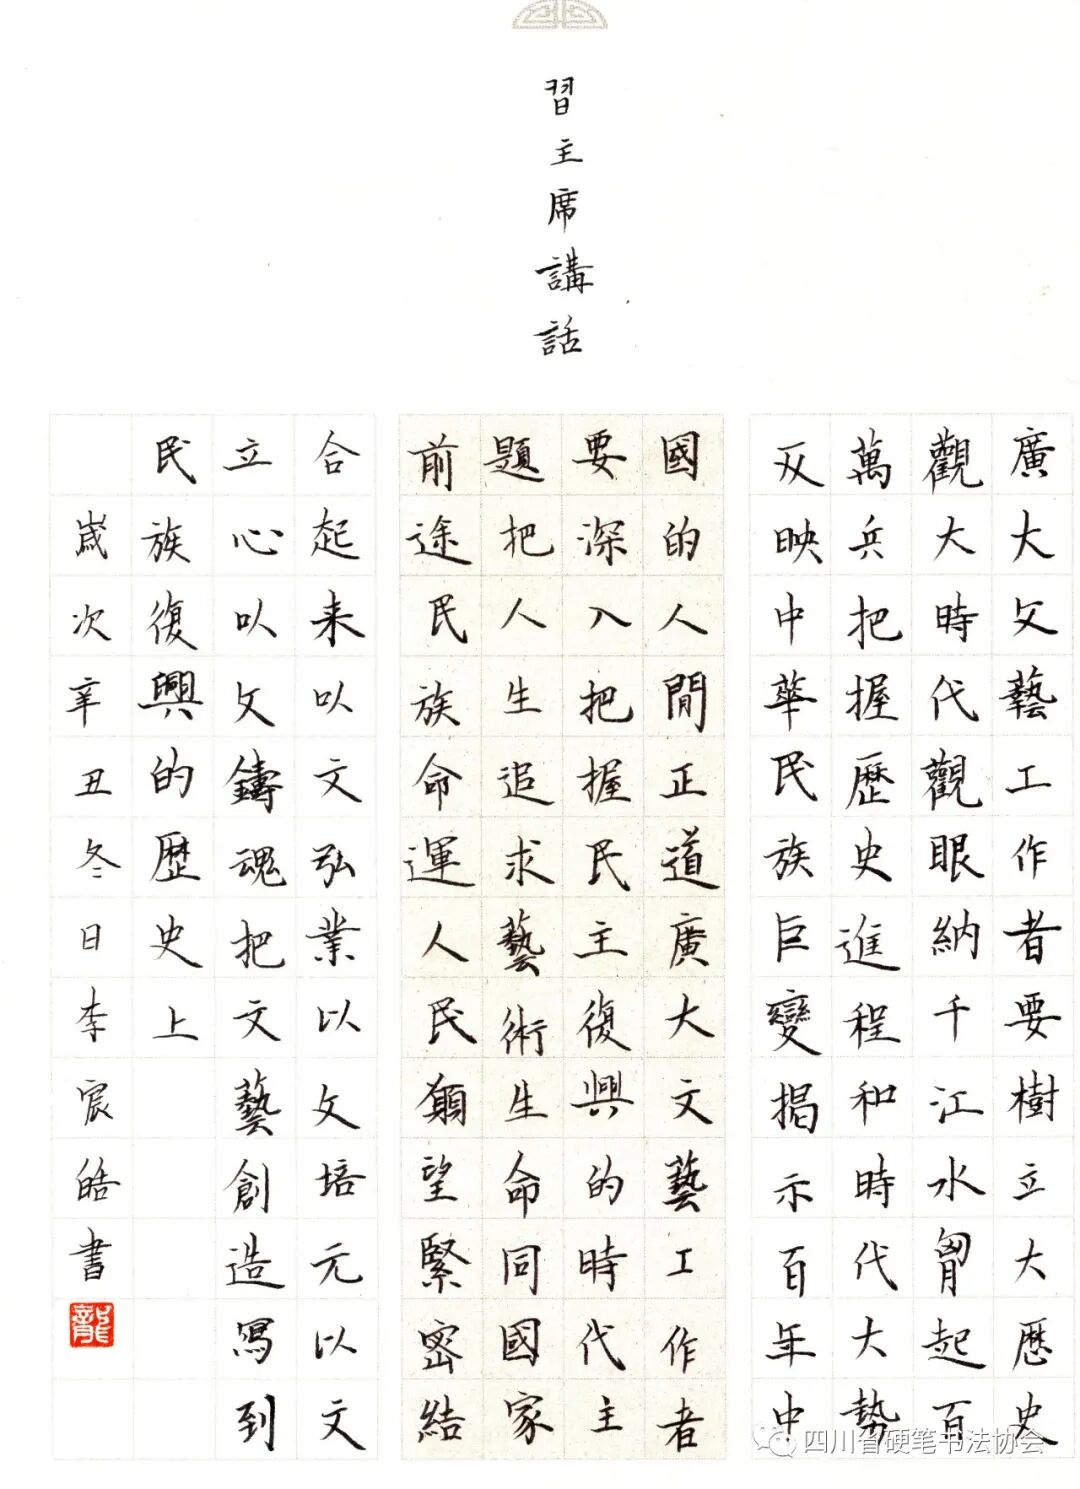 習主席講話
廣大文藝工作者要樹立大歷史
觀大時代觀眼納千江水胷起百
萬兵把握歷史進程和時代大勢
反映中華民族巨變揭示百年中
國的人間正道廣大文藝工作者
要深入把握民主復興的時代主
題把人生追求藝術生命同國家
前途民族命運人民願望緊密結
合起来以文弘業以文培元以文
立心以文鑄魂把文藝創造寫到
民族復興的歷史上
歲次辛丑冬日李宸皓書
龍
四川省硬笔书法协会